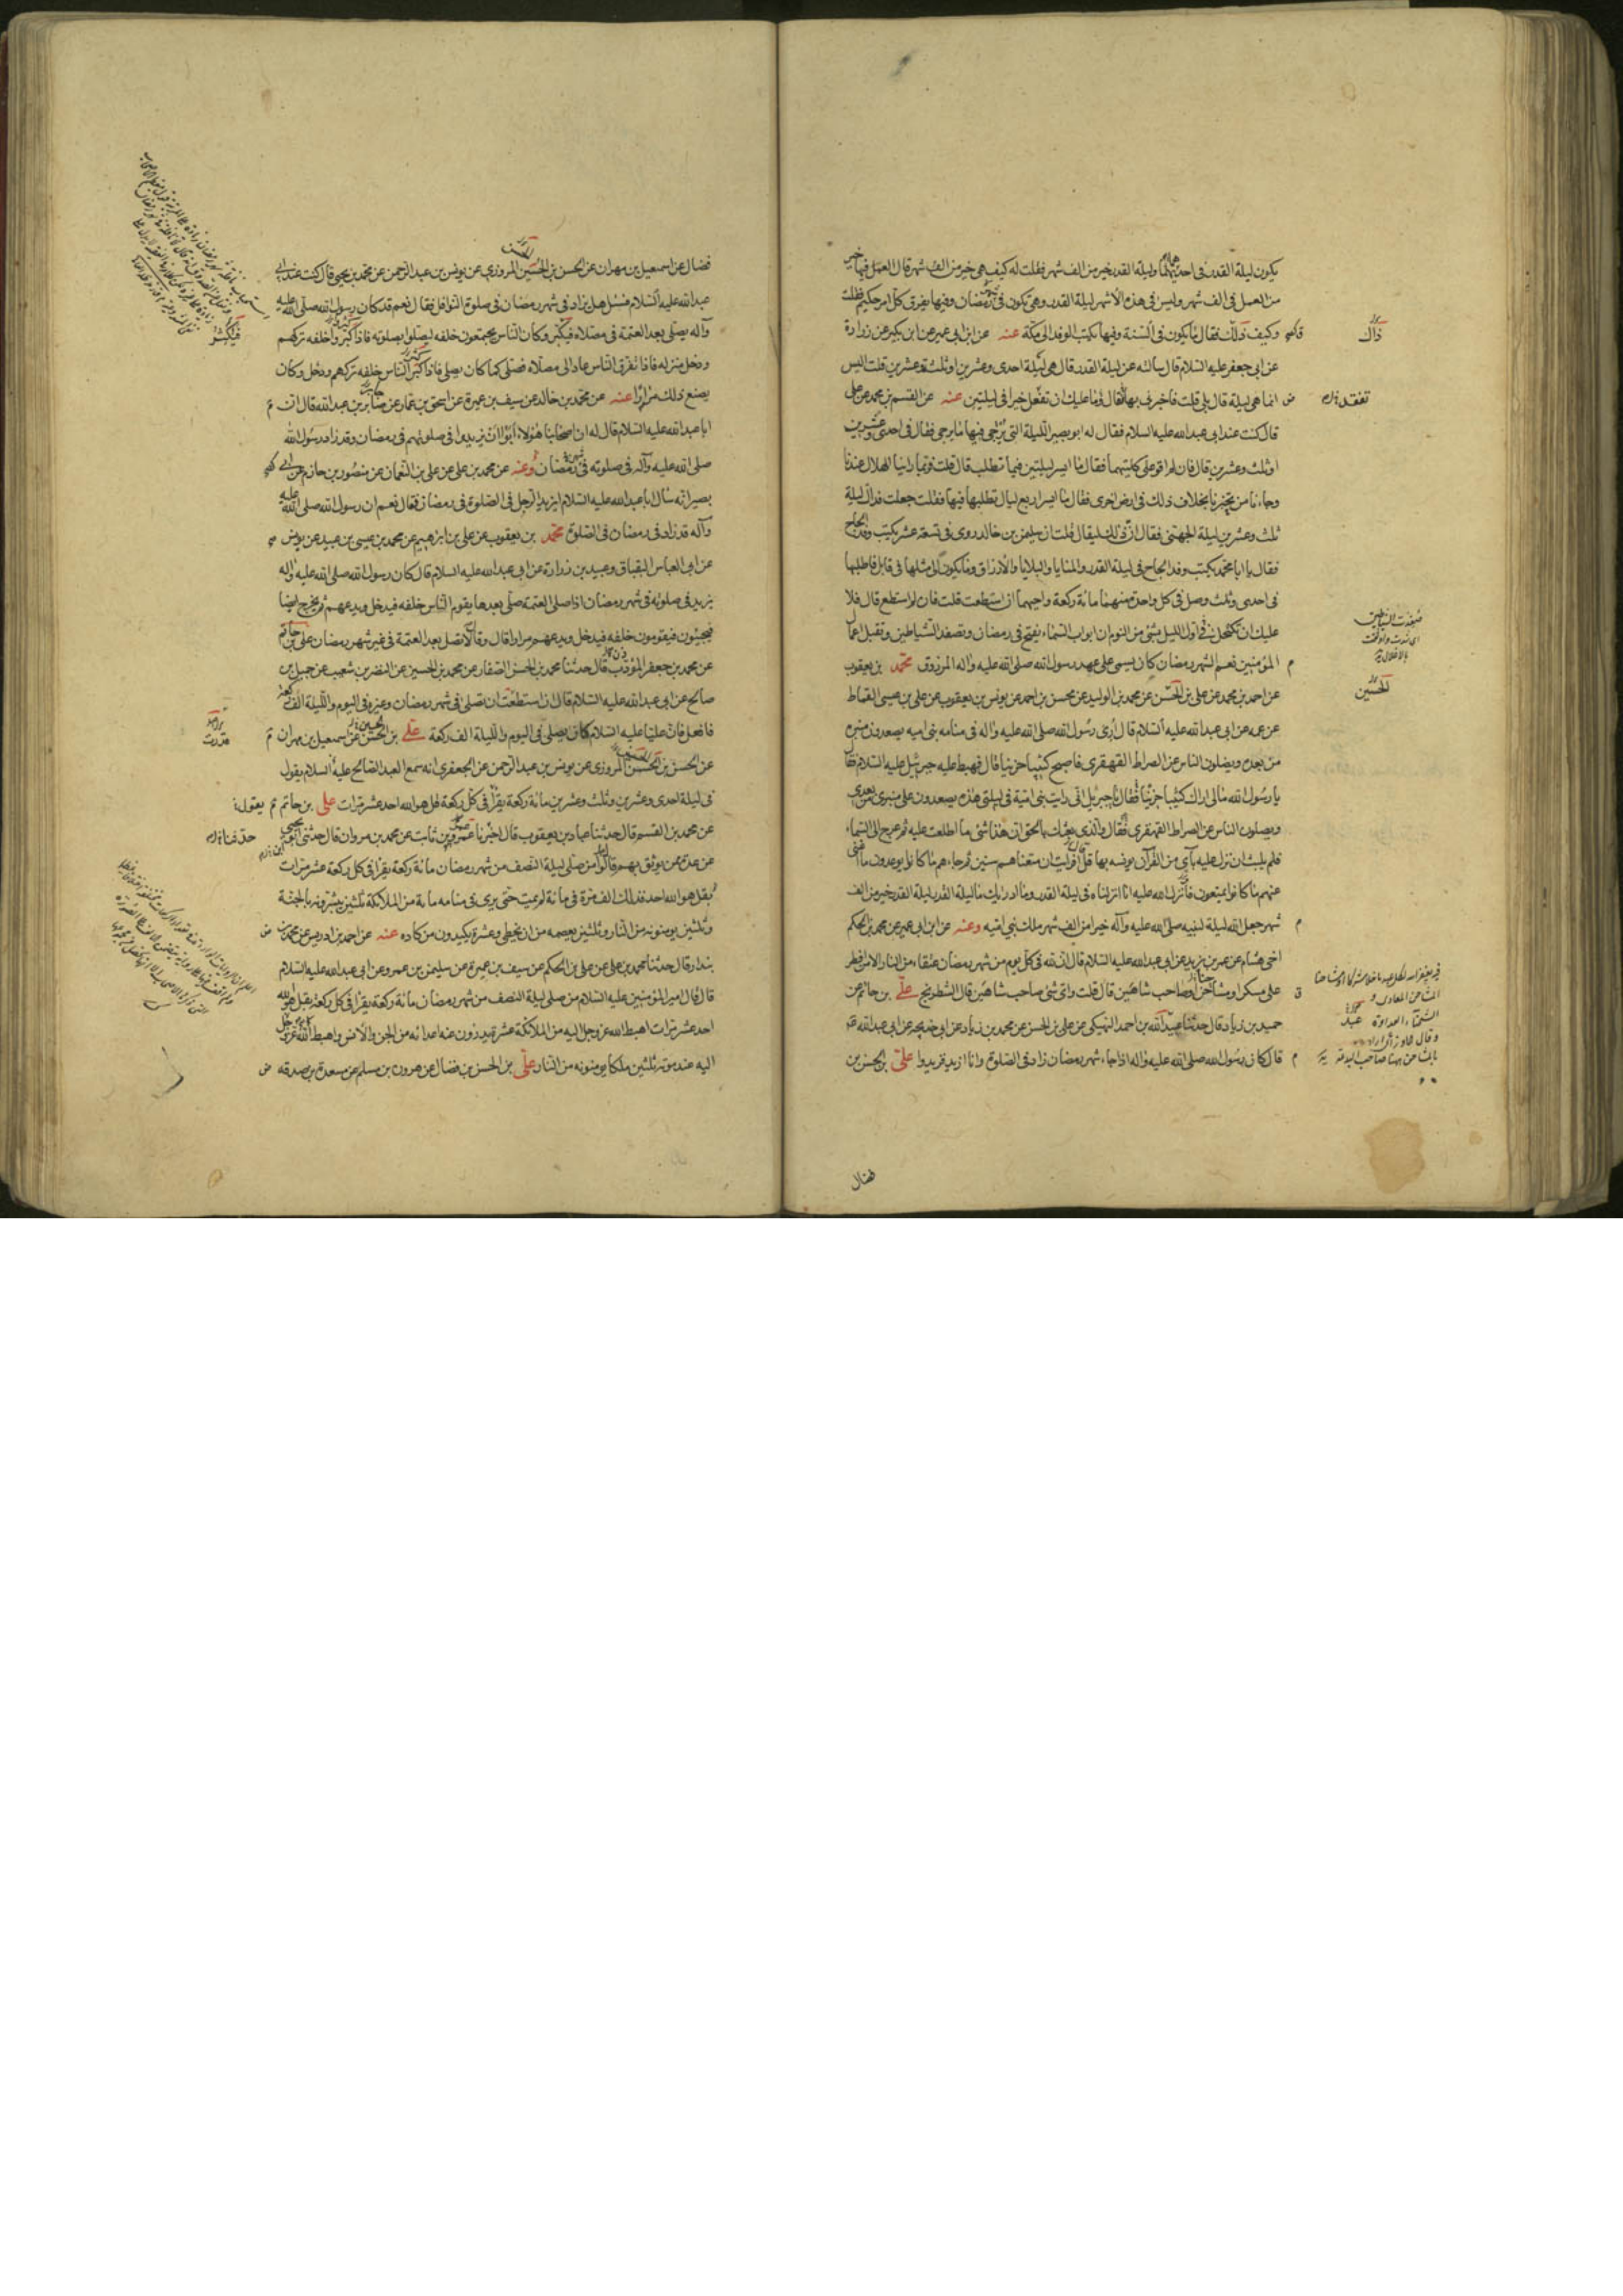 يكون ليلة القدر في احديهما وليلة القدر خير من الف شهر فقلت له كيف هي خير من الف شهر قال العمل فيها خير
من العمل في الف شهر وليس في هذه الاشهر ليلة القدر وهي تكون في رمضان وفيها يفرق كل امر حكيم فقلت
وكيف ذلك فقال ما يكون في السنة وفيها يكتب الوفد الى مكة عنه عن ابن ابي عمير عن ابن بكير عن زرارة
ذاك
عن ابي جعفر عليه السلام قال سالته عن ليلة القدر قال هي ليلة احدى وعشرين او ثلث وعشرين قلت اليس
انما هي ليلة قال بلى قلت فاخبرني بها فقال وما عليك ان تفعل خيرا في ليلتين عنه عن القسم بن محمد عن علي
قال كنت عند ابي عبد الله عليه السلام فقال له ابو بصير الليلة التي يرجى فيها ما يرجى فقال في احدى وعشرين
او ثلث وعشرين قال فان لم اقو على كلتيهما فقال ما ايسر ليلتين فيما تطلب قال قلت فربما راينا الهلال عندنا
وجاءنا من يخبرنا بخلاف ذلك في ارض اخرى فقال ما ايسر اربع ليال تطلبها فيها فقلت جعلت فداك ليلة
ثلث وعشرين ليلة الجهني فقال ان ذلك ليقال قلت ان سليمن بن خالد روى في تسعة عشر يكتب وفد الحاج
فقال يا ابا محمد يكتب وفد الحاج في ليلة القدر والمنايا والبلايا والارزاق وما يكون الى مثلها في قابل فاطلبها
في احدى وثلث وصل في كل واحدة منهما مائة ركعة واحيهما ان استطعت قلت فان لم استطع قال فلا
عليك ان تكتحل في اول الليل بشئ من النوم ان ابواب السماء يفتح في رمضان وتصفد الشياطين وتقبل اعمال
المؤمنين نعم الشهر رمضان كان يسمى على عهد رسول الله صلى الله عليه وآله المرزوق محمد بن يعقوب
عن احمد بن محمد عن علي بن الحسن عن محمد بن الوليد عن محسن بن احمد عن يونس بن يعقوب عن علي بن عيسى القماط
الحسين
عن عمه عن ابي عبد الله عليه السلام قال ارى رسول الله صلى الله عليه وآله في منامه بني اميه يصعدون منبره
من بعده ويضلون الناس عن الصراط القهقرى فاصبح كئيبا حزينا قال فهبط عليه جبرئيل عليه السلام فقال
يا رسول الله مالي اراك كئيبا حزينا فقال يا جبرئيل اني رايت بني امية في ليلتي هذه يصعدون على منبري من بعدي
ويضلون الناس عن الصراط القهقرى فقال والذي بعثك بالحق ان هذا شئ ما اطلعت عليه ثم عرج الى السماء
فلم يلبث ان نزل عليه بآي من القرآن يونسه بها قال افرايت ان متعناهم سنين ثم جاءهم ما كانوا يوعدون ما اغنى
عنهم ما كانوا يمتعون فانزل الله عليه انا انزلناه في ليلة القدر وما ادريك ما ليلة القدر ليلة القدر خير من الف
شهر جعل الله ليلة لنبيه صلى الله عليه وآله خيرا من الف شهر ملك بني اميه وعنه عن ابن ابي عمير عن محمد بن الحكم
اخي هشام عن عمر بن يزيد عن ابي عبد الله عليه السلام قال ان لله في كل يوم من شهر رمضان عتقاء من النار الا من افطر
على مسكر او مشاحن او صاحب شاهين قال قلت واي شئ صاحب شاهين قال الشطرنج علي بن حاتم عن
حميد بن زياد قال حدثنا عبد الله بن احمد النهيكي عن علي بن الحسن عن محمد بن زياد عن ابي خديجه عن ابي عبد الله
قال كان رسول الله صلى الله عليه وآله اذا جاء شهر رمضان زاد في الصلوة وانا ازيد فزيدوا علي بن الحسن بن
فضال
فضال عن اسمعيل بن مهران عن الحسن بن الحسين المروزي عن يونس بن عبد الرحمن عن محمد بن يحيى قال كنت عند ابي
عبد الله عليه السلام فسئل هل يزاد في شهر رمضان في صلوة النوافل فقال نعم قد كان رسول الله صلى الله عليه
وآله يصلي بعد العتمة في مصلاه فيكثر وكان الناس يجتمعون خلفه ليصلوا بصلوته فاذا كثروا خلفه تركهم
ودخل منزله فاذا تفرق الناس عاد الى مصلاه فصلى كما كان يصلي فاذا كثر الناس خلفه تركهم ودخل وكان
يصنع ذلك مرارا عنه عن محمد بن خالد عن سيف بن عميرة عن اسحق بن عمار عن صابر بن عبد الله قال ان
ابا عبد الله عليه السلام قال له ان اصحابنا هؤلاء ابوا ان يزيدوا في صلوتهم في رمضان وقد زاد رسول الله
صلى الله عليه وآله في صلوته في رمضان وعنه عن محمد بن علي عن علي بن النعمان عن منصور بن حازم عن ابي
بصير انه سال ابا عبد الله عليه السلام ايزيد الرجل في الصلوة في رمضان فقال نعم ان رسول الله صلى الله عليه
وآله قد زاد في رمضان في الصلوة محمد بن يعقوب عن علي بن ابراهيم عن محمد بن عيسى بن عبيد عن يونس
عن ابي العباس البقباق وعبيد بن زرارة عن ابي عبد الله عليه السلام قال كان رسول الله صلى الله عليه وآله
يزيد في صلوته في شهر رمضان اذا صلى العتمة صلى بعدها يقوم الناس خلفه فيدخل ويدعهم ثم يخرج ايضا
فيجيئون فيقومون خلفه فيدخل ويدعهم مرارا قال وقال لا تصل بعد العتمة في غير شهر رمضان علي بن حاتم
عن محمد بن جعفر المؤدب قال حدثنا محمد بن الحسن الصفار عن محمد بن الحسين عن النضر بن شعيب عن جميل بن
صالح عن ابي عبد الله عليه السلام قال ان استطعت ان تصلي في شهر رمضان وغيره في اليوم والليلة الف ركعة
فافعل فان عليا عليه السلام كان يصلي في اليوم والليلة الف ركعة علي بن الحسن عن اسمعيل بن مهران
عن الحسن بن الحسن المروزي عن يونس بن عبد الرحمن عن الجعفري انه سمع العبد الصالح عليه السلام يقول
في ليلة احدى وعشرين وثلث وعشرين مائة ركعة يقرا في كل ركعة قل هو الله احد عشر مرات علي بن حاتم
عن محمد بن القسم قال حدثنا عباد بن يعقوب قال اخبرنا عمرو بن ثابت عن محمد بن مروان قال حدثني ابو يحيى
عن عدة ممن يوثق بهم قالوا من صلى ليلة النصف من شهر رمضان مائة ركعة يقرا في كل ركعة عشر مرات
بقل هو الله احد فذلك الف مرة في مائة لم يمت حتى يرى في منامه مائة من الملائكة ثلثين يبشرونه بالجنة
وثلثين يومنونه من النار وثلثين يعصمه من ان يخطي وعشرة يكيدون من كاده عنه عن احمد بن ادريس عن محمد بن
بندار قال حدثنا محمد بن علي عن علي بن الحكم عن سيف بن عميرة عن سليمن بن عمرو عن ابي عبد الله عليه السلام
قال قال امير المؤمنين عليه السلام من صلى ليلة النصف من شهر رمضان مائة ركعة يقرا في كل ركعة بقل هو الله
احد عشر مرات اهبط الله عز وجل اليه من الملائكة عشرة يدرؤن عنه اعدائه من الجن والانس واهبط الله عز وجل
اليه عند موته ثلثين ملكا يومنونه من النار علي بن الحسن بن فضال عن هرون بن مسلم عن مسعدة بن صدقه